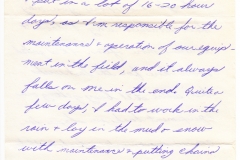 I put in a lot of 16-20 hour
days, as I'm responsible for the
maintenance & operation of our equip-
ment in the field, and it always
falls on me in the end. Quite a
few days, I had to work in the
rain & lay in the mud & snow
with maintenance & putting chains